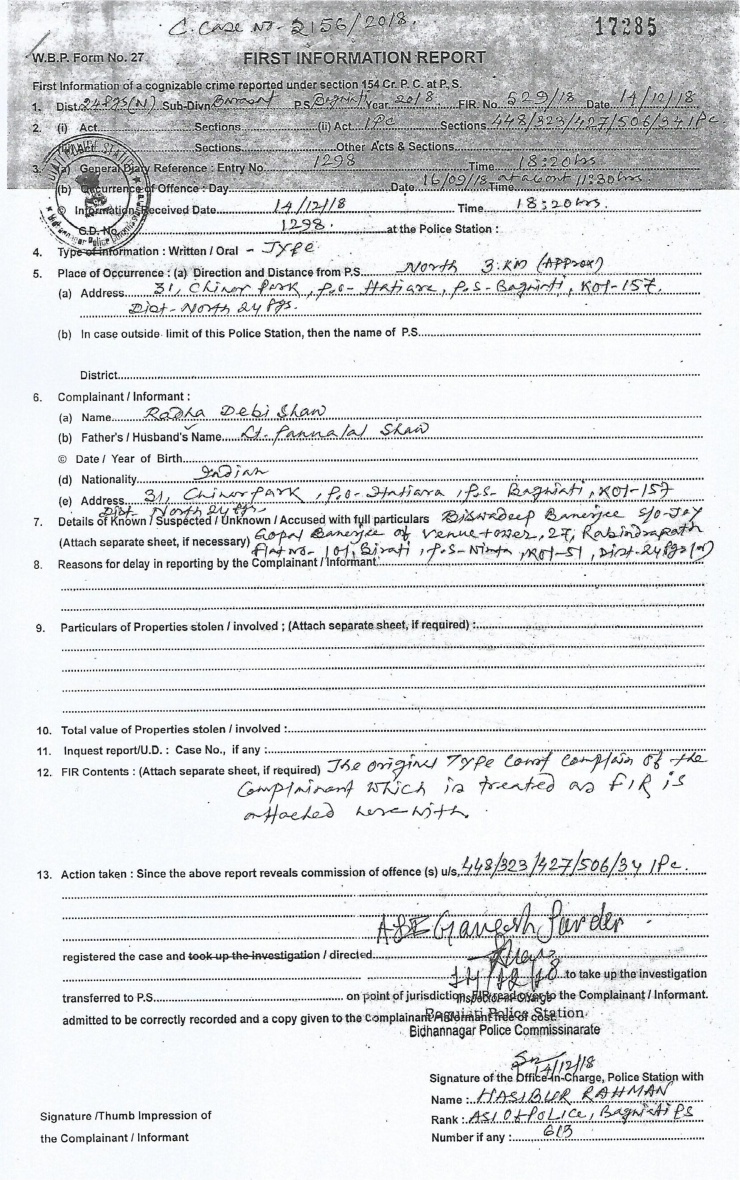 C. Case No. 2156/2018.
17285
W.B.P. Form No. 27
FIRST INFORMATION REPORT
First Information of a cognizable crime reported under section 154 Cr. P. C. at P. S.
1. Dist. 24 Pgs (N) Sub-Divn Barasat P.S. Baguiati Year. 2018 FIR. No. 529/18 Date 14/12/18
2. (i) Act Sections (ii) Act. IPC Sections 448/323/427/506/34 IPC
Sections Other Acts & Sections
3. (a) General Diary Reference : Entry No. 1298 Time 18:20 hrs
(b) Occurrence of Offence : Day Date 16/09/18 at about 11:30 hrs Time
© Information Received Date 14/12/18 Time 18:20 hrs.
G.D. No. 1298. at the Police Station :
4. Type of Information : Written / Oral - Type
5. Place of Occurrence : (a) Direction and Distance from P.S. North 3. KM (Approx)
(a) Address 31, Chinar Park, P.O- Hatiara, P.S- Baguiati, Kol-157.
Dist- North 24 Pgs.
(b) In case outside limit of this Police Station, then the name of P.S.
District
6. Complainant / Informant :
(a) Name Radha Debi Shaw
(b) Father's / Husband's Name Lt. Pannalal Shaw
© Date / Year of Birth
(d) Nationality Indian
(e) Address 31, Chinar Park, P.O- Hatiara, P.S- Baguiati, Kol-157
Dist North 24 Pgs.
7. Details of Known / Suspected / Unknown / Accused with full particulars Biswadeep Banerjee S/o- Jay
(Attach separate sheet, if necessary) Gopal Banerjee of Venue tower, 27, Rabindrapath
Flat No- 101, Birati, P.S- Nimta, Kol-51, Dist- 24 Pgs (N)
8. Reasons for delay in reporting by the Complainant / Informant.
9. Particulars of Properties stolen / involved ; (Attach separate sheet, if required) :
10. Total value of Properties stolen / involved :
11. Inquest report/U.D. : Case No., if any :
12. FIR Contents : (Attach separate sheet, if required) The original Type Court complain of the
Complainant which is treated as FIR is
attached herewith.
13. Action taken : Since the above report reveals commission of offence (s) u/s. 448/323/427/506/34 IPC.
ASI Ganesh Sarder
registered the case and took up the investigation / directed
14/12/18 to take up the investigation
transferred to P.S. on point of jurisdiction. FIR read over to the Complainant / Informant.
Inspector-in-Charge
admitted to be correctly recorded and a copy given to the Complainant / Informant free of cost.
Baguiati Police Station
Bidhannagar Police Commissinarate
14/12/18
Signature of the Office-in-Charge, Police Station with
Name : HASIBUR RAHMAN
Signature /Thumb Impression of
Rank : ASI Of POLICE, Baguiati PS
the Complainant / Informant
Number if any : 613